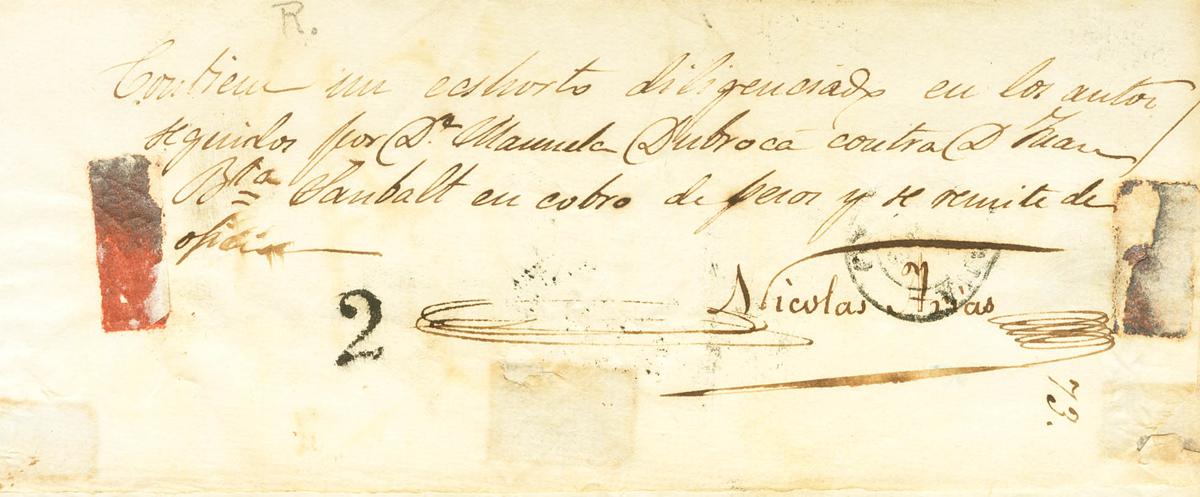 R.
Contiene un ecshorto diligenciado en los autos
seguidos por Dª Manuela Dubroca contra D Juan
Bta Sanbalt en cobro de pesos y se remite de
oficio
Nicolas
2
73.